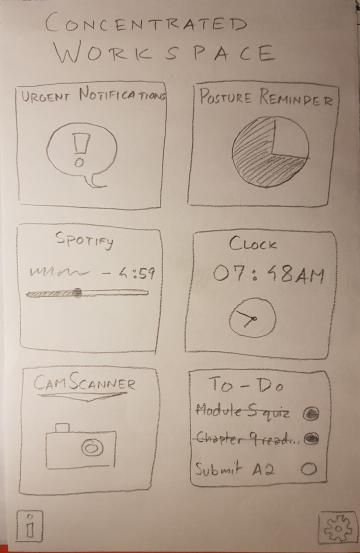 CONCENTRATED
WORKSPACE
URGENT NOTIFICATIONS
POSTURE REMINDER
!
SPOTIFY
- 4:59
CLOCK
07:48AM
CAMSCANNER
TO-DO
Module 5 quiz
Chapter 9 read...
Submit A2
i